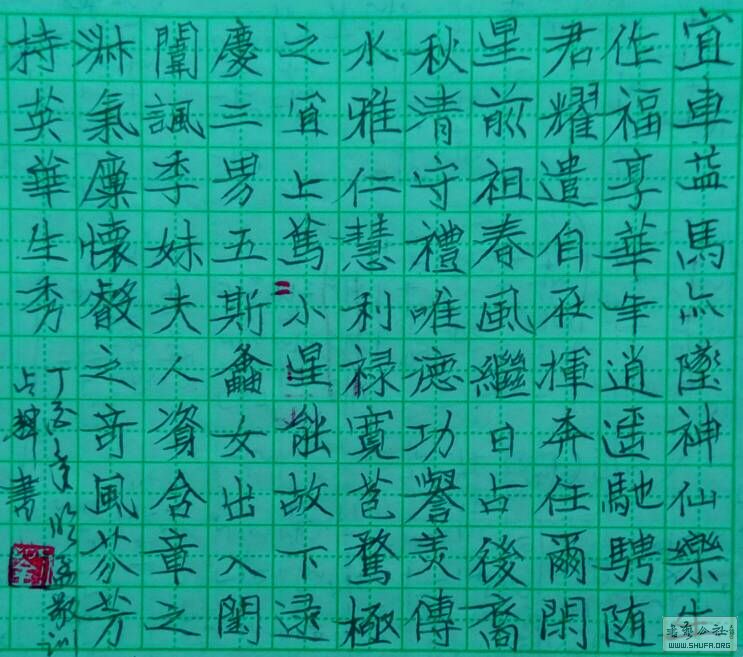 宜車蓋馬亦墜神仙樂生
作福享華年逍遥馳騁随
君耀遣自在揮奔任爾閑
星前祖春風繼日占後裔
秋清守禮唯德功譽美傳
水雅仁慧利禄寬苞騖極
之宜上篤小星能故下逯
慶三男五斯螽女出入閨
闈諷季妹夫人資含章之
淋氣廩懷叡之奇風芬芳
持英華生秀
占輝書
書艺公社
WWW.SHUFA.ORG